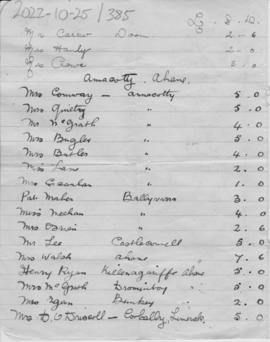 2022-10-25/385
Mr Carew Doon 2-6
Mrs Hanly 2.0
Mrs Rowe 5.0
Annacotty. Ahane.
Mrs Conway - annacotty 5.0
Mrs Quielty " 5.0
Mr McGrath " 4.0
Mrs Bugler " 5.0
Mrs Butler " 4.0
Miss Lane " 2.0
" 1.0
Pat Maher Ballyvarra 3.0
Miss Meehan " 4.0
Mrs O'Brien " 2.6
Mr Lee Castleconnell 5.0
Mrs Walsh ahane 7.6
Henry Ryan Killenagariffe Ahane 5.0
Mrs McGrath 5.0
Mrs 2.0
Mrs D. O'Driscoll - Coolbally, Limerick. 5.0